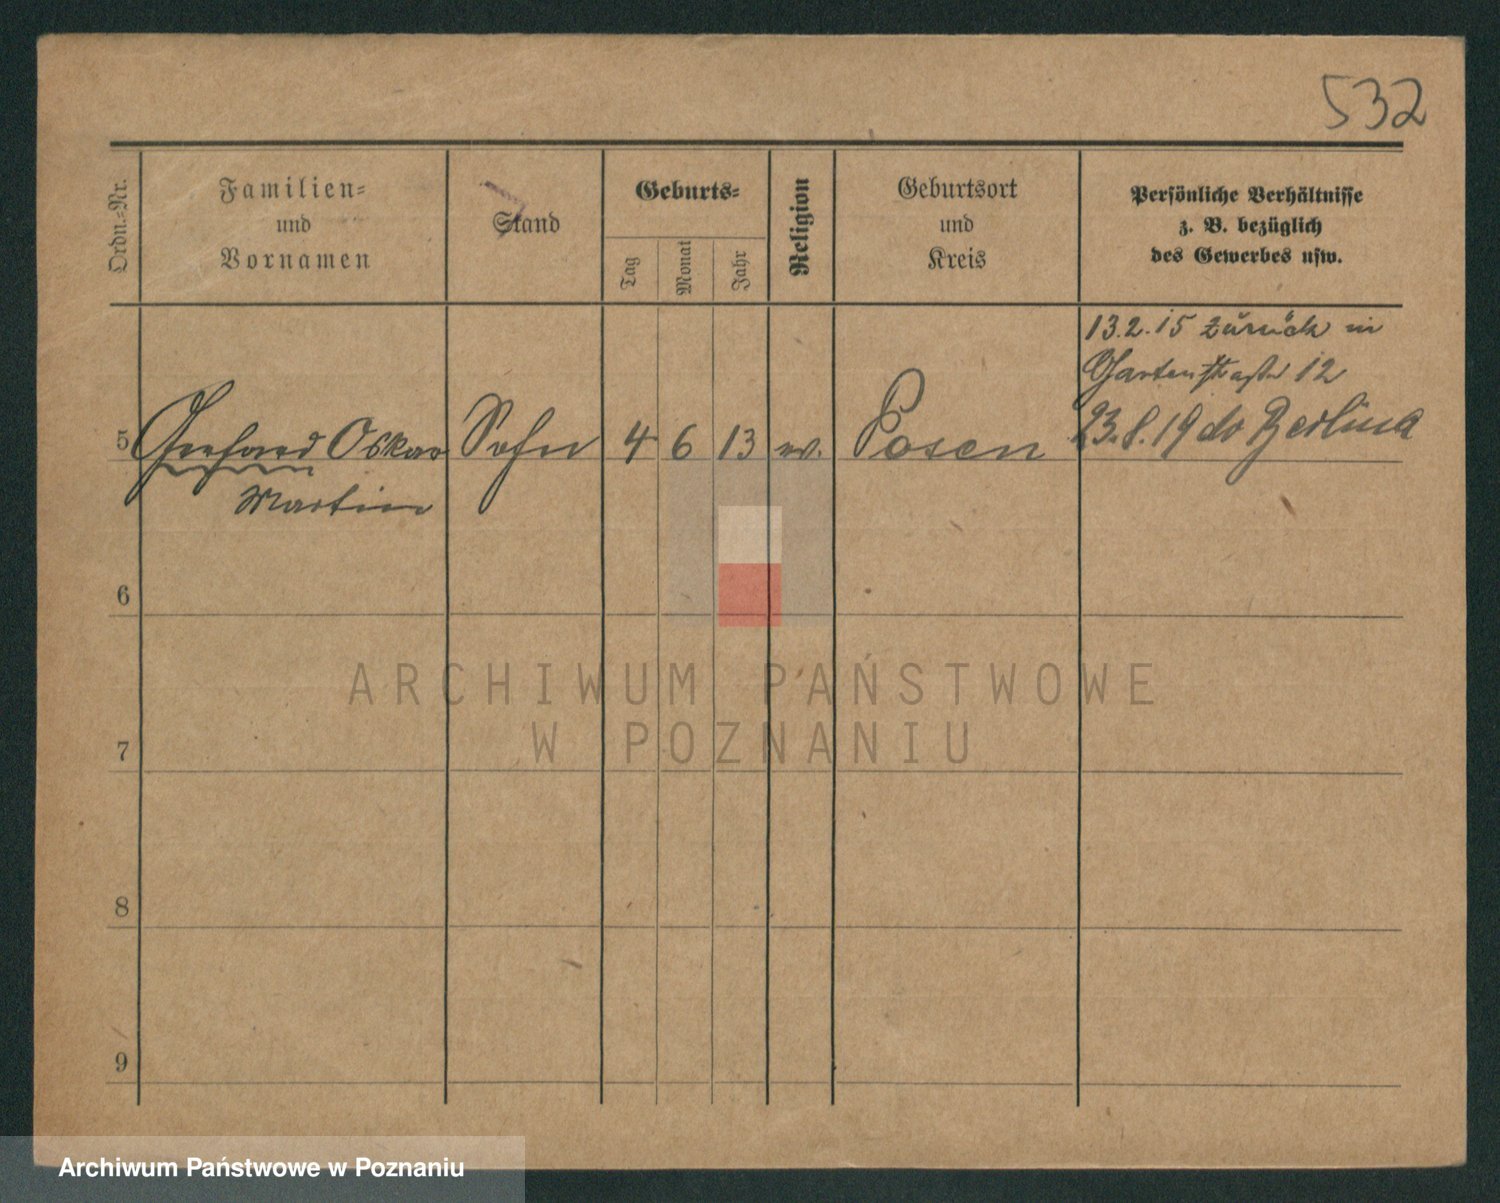 532
Ordn.-Nr.
Familien-
und
Vornamen
Stand
Geburts-
Tag
Monat
Jahr
Religion
Geburtsort
und
Kreis
Persönliche Verhältnisse
z. B. bezüglich
des Gewerbes usw.
13.2.15 zurück in
Gartenstraße 12
5 Gerhard Oskar Sohn 4 6 13 ev. Posen 23.8.19 do Berlina
Martin
6
7
8
9
ARCHIWUM PAŃSTWOWE
W POZNANIU
Archiwum Państwowe w Poznaniu